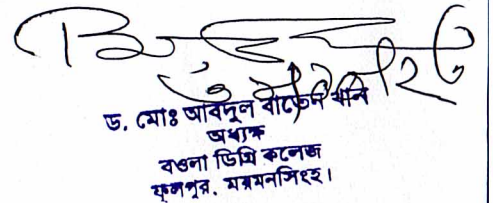 ড. মোঃ আবদুল বাতেন খান
অধ্যক্ষ
বওলা ডিগ্রি কলেজ
ফুলপুর, ময়মনসিংহ।